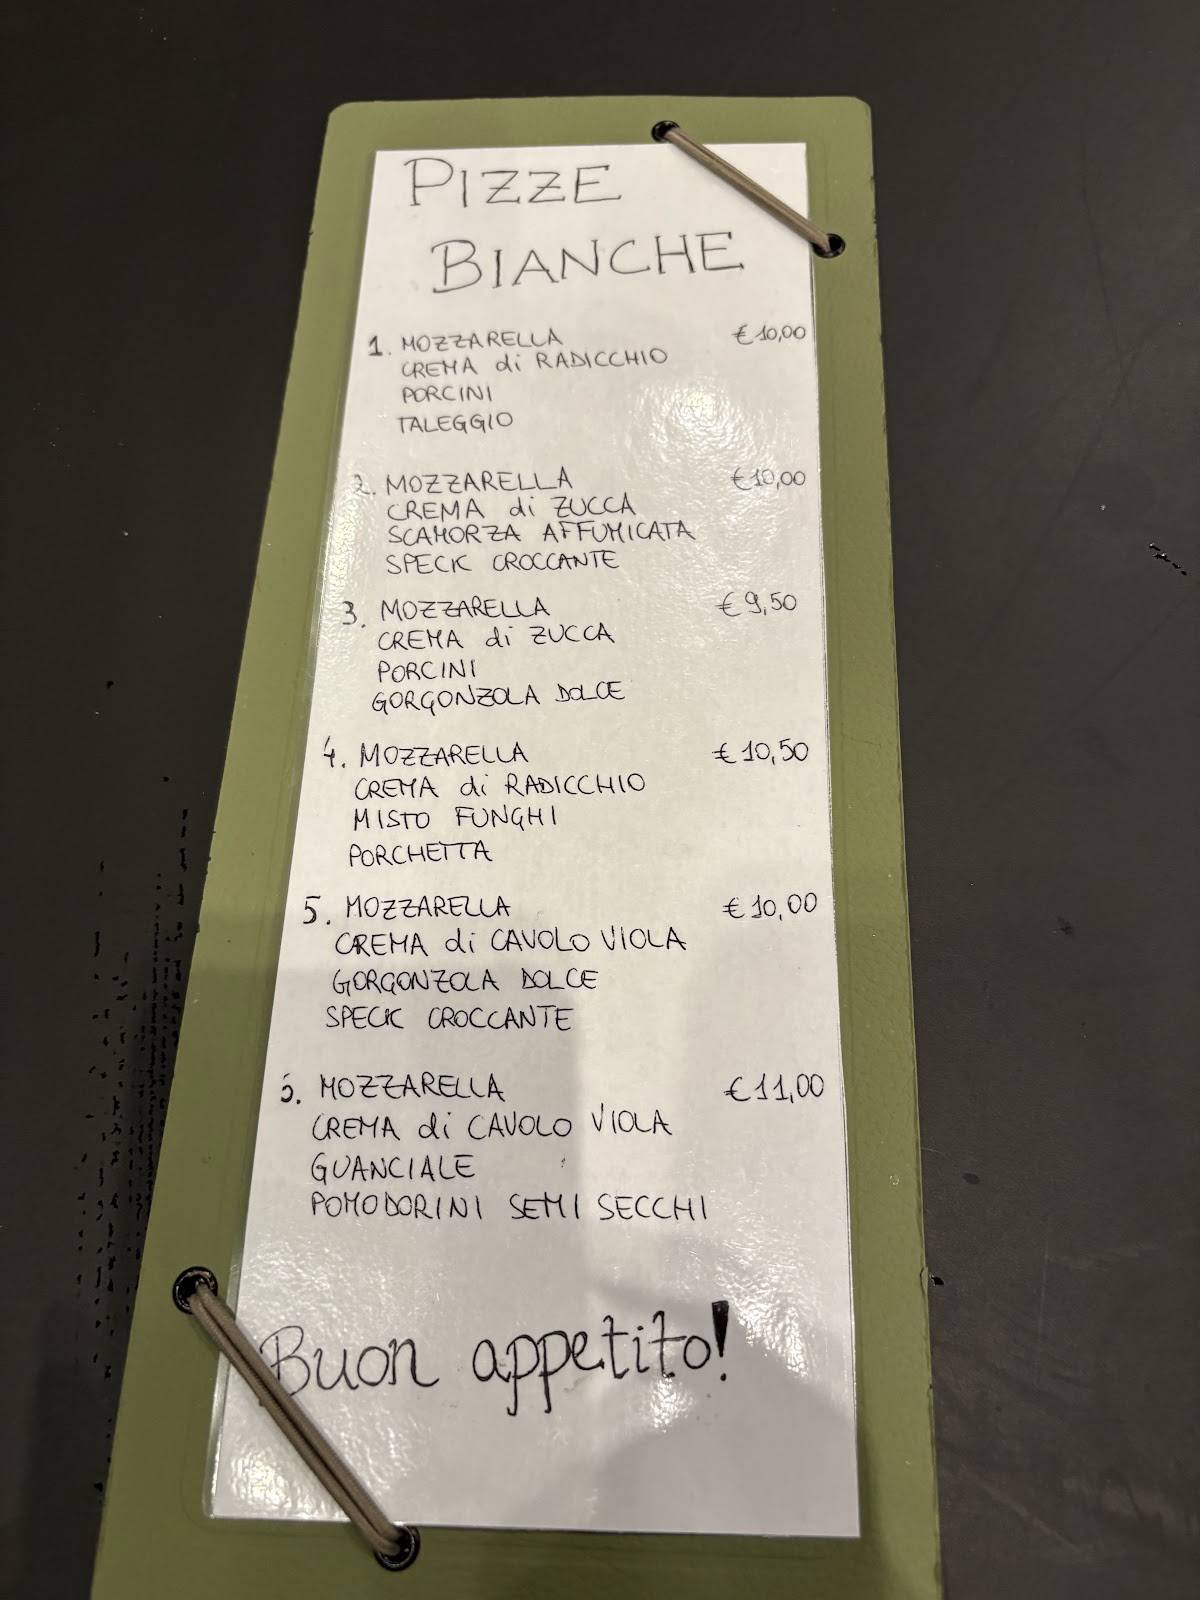 PIZZE
BIANCHE
1. MOZZARELLA € 10,00
CREMA di RADICCHIO
PORCINI
TALEGGIO
2. MOZZARELLA € 10,00
CREMA di ZUCCA
SCAMORZA AFFUMICATA
SPECK CROCCANTE
3. MOZZARELLA € 9,50
CREMA di ZUCCA
PORCINI
GORGONZOLA DOLCE
4. MOZZARELLA € 10,50
CREMA di RADICCHIO
MISTO FUNGHI
PORCHETTA
5. MOZZARELLA € 10,00
CREMA di CAVOLO VIOLA
GORGONZOLA DOLCE
SPECK CROCCANTE
6. MOZZARELLA € 11,00
CREMA di CAVOLO VIOLA
GUANCIALE
POMODORINI SEMI SECCHI
Buon appetito!